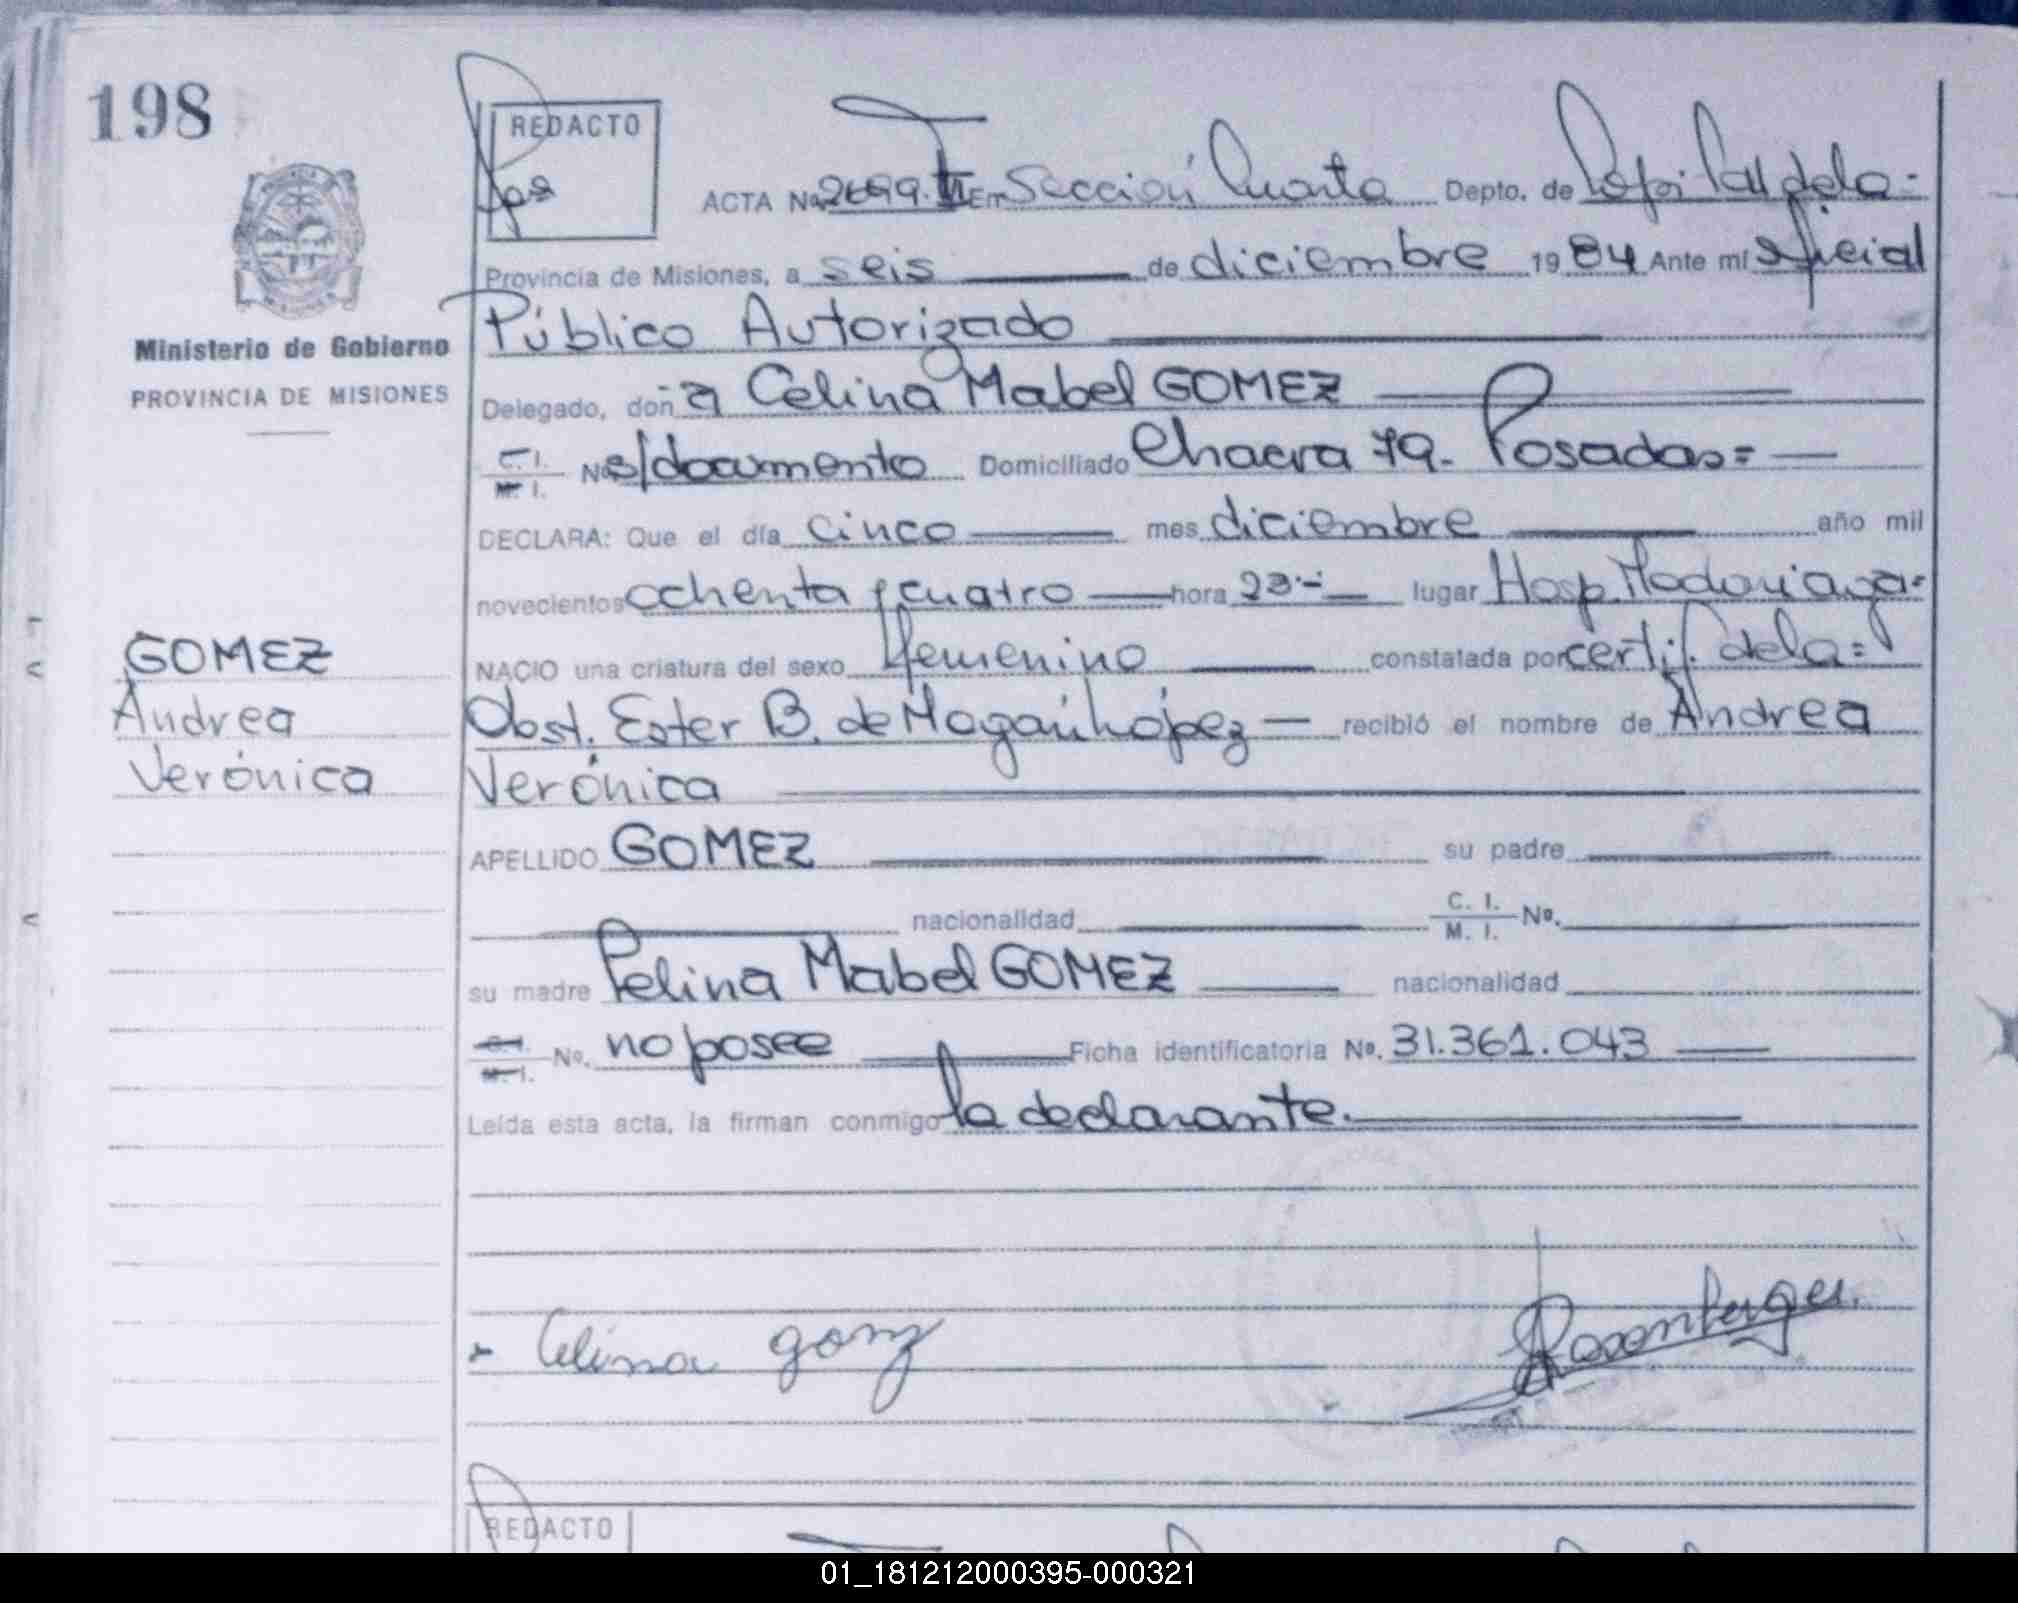 198
REDACTO
ACTA No 2699. TII En Sección Cuarta Depto. de Capital de la
Provincia de Misiones, a seis de diciembre 1984 Ante mí oficial
Público Autorizado
Ministerio de Gobierno
PROVINCIA DE MISIONES
Delegado, doña Celina Mabel GOMEZ
C. I. M. I. No s/documento Domiciliado Chacra 79. Posadas=
DECLARA: Que el día cinco mes diciembre año mil
novecientos ochenta y cuatro hora 23 lugar Hosp. Madariaga=
NACIO una criatura del sexo femenino constatada por certif. de la=
Obst. Ester B. de López recibió el nombre de Andrea
Verónica
GOMEZ
Andrea
Verónica
APELLIDO GOMEZ su padre
nacionalidad C. I. M. I. No.
su madre Celina Mabel GOMEZ nacionalidad
C. I. M. I. No. no posee Ficha identificatoria No. 31.361.043
Leída esta acta, la firman conmigo la declarante.
Celina gomz
Rosenberger
REDACTO
01_181212000395-000321